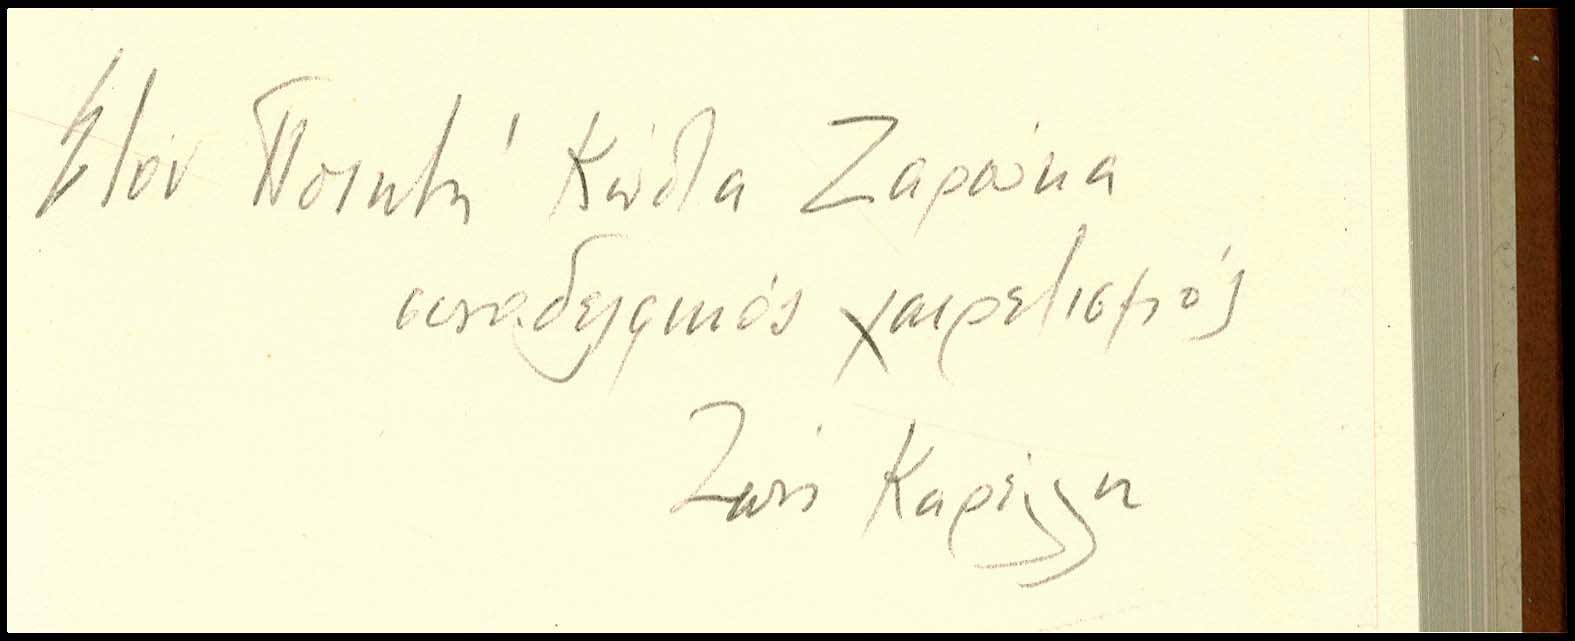 Στόν Ποιητή Κώστα Ζαρούκα
συναδελφικός χαιρετισμός
Ζωή Καρέλλη